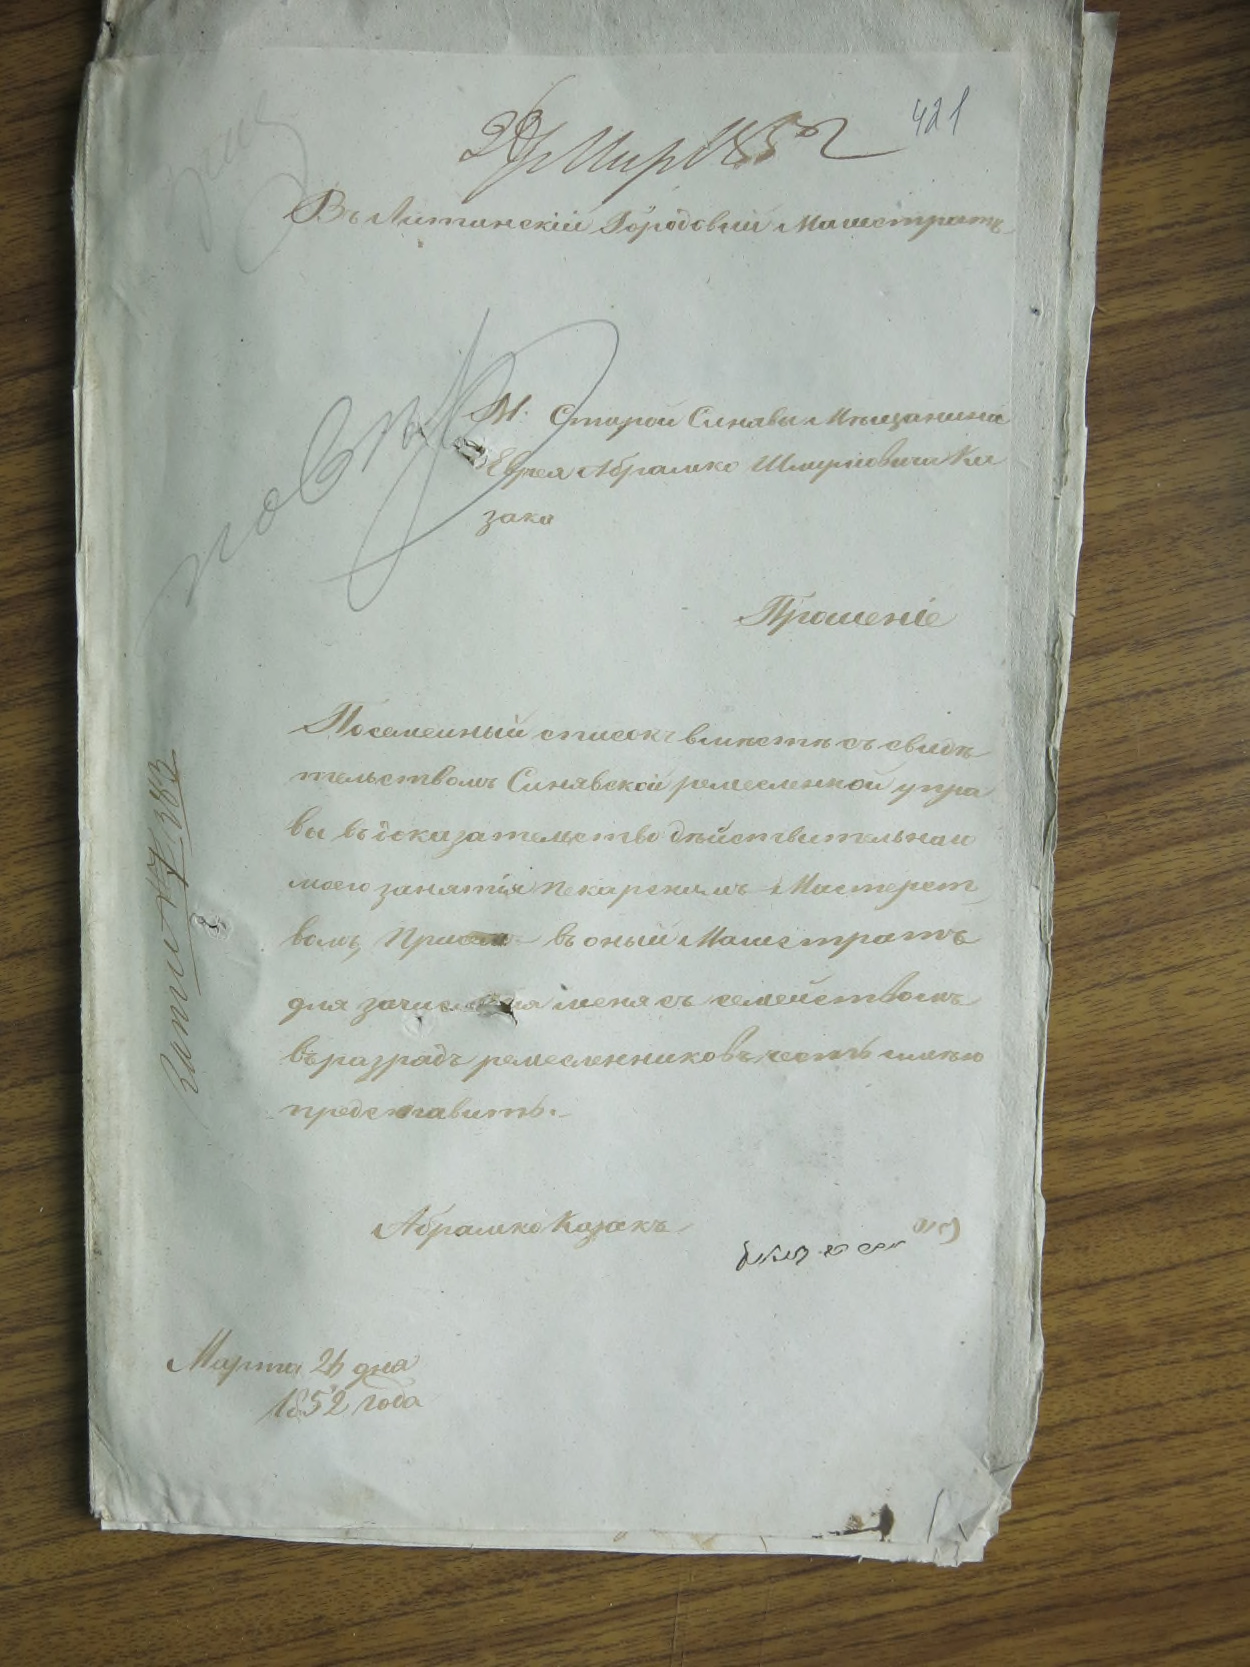 421
Марта 1852
Въ Литинскій Городовый Магистратъ
М. Старой Синявы Мѣщанина
Еврея Абрамко Шмулiовича Ка
зака
Прошеніе
Посемейный списокъ вместѣ съ свидѣ
тельствомъ Синявской ремесленной упра
вы въ доказательство дѣйствительнаго
моего занятія пекарскимъ Мастерст
вомъ, при въ оный Магистратъ
для зачисленія меня съ семействомъ
въ разрядъ ремесленниковъ честь имѣю
представить.
Абрамко Казакъ
Марта 24 дня
1852 года
№ 383